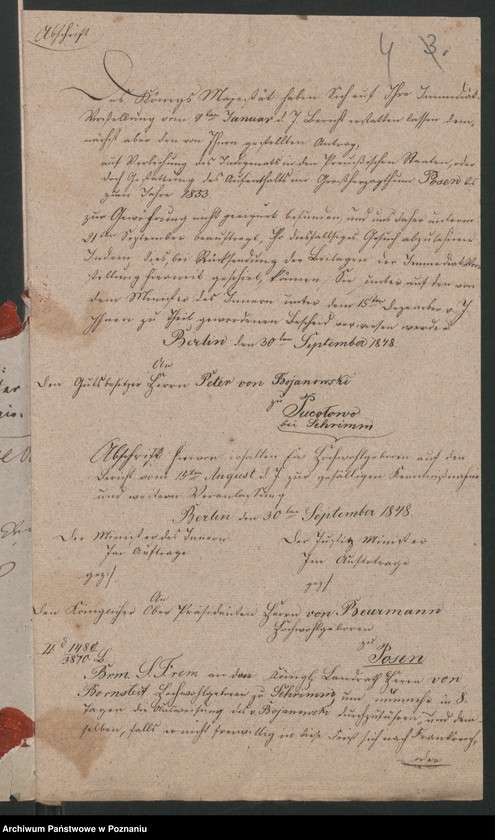 Abschrift
4 3.
Des Königs Majestät haben Sich auf Ihre Immediat-
Vorstellung vom 9ten Januar d. J. Bericht erstatten lassen, dem-
nächst aber den von Ihnen gestellten Antrag,
auf Verleihung des Indigenats in den Preußischen Staaten, oder
doch Gestattung des Aufenthalts im Großherzogthum Posen bis
zum Jahre 1853
zur Gewährung nicht geeignet befunden, und uns daher unterm
21ten September beauftragt, Ihr diesfälliges Gesuch abzulehnen.
Indem dies, bei Rücksendung der Beilagen der Immediat-Vor-
stellung hiermit geschieht, können Sie nur auf den von
dem Minister des Innern unter dem 15ten Dezember v. J.
Ihnen zu Theil gewordenen Bescheid verwiesen werden.
Berlin den 30ten September 1848.
An
den Gutsbesitzer Herrn Peter von Bojanowski
zu
bei Schrimm
Abschrift hiervon erhalten Ew Hochwohlgeboren auf den
Bericht vom 15ten August d. J. zur gefälligen Kenntnißnahme
und weitern Veranlassung
Berlin den 30ten September 1848.
Der Minister des Innern Der Justiz Minister
Im Auftrage Im Auftrage
gez:/ gez:/
An
den Königlichen Ober Präsidenten Herrn von Beurmann
Hochwohlgeboren
zu
Posen
1480
3870
an den Königl. Landrath Herrn von
Hochwohlgeboren zu Schrimm um nunmehr in 8.
Tagen die Ausweisung des v. Bojanowski durchzuführen, und dem-
selben, falls er nicht freiwillig in dieser Frist sich nach Frankreich,
oder
Archiwum Państwowe w Poznaniu